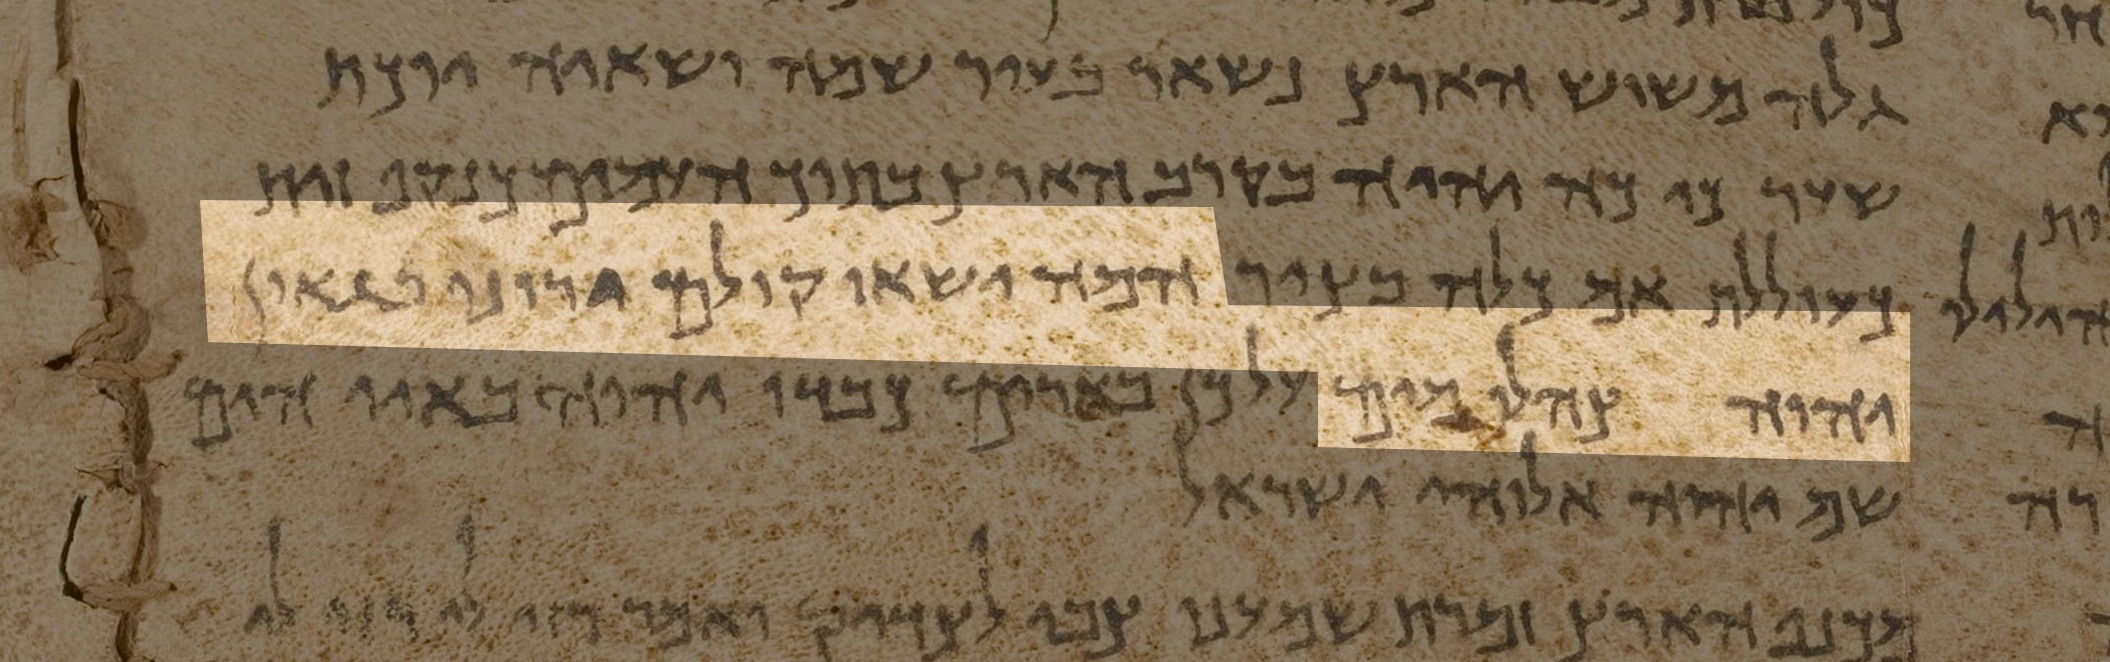 גלה משוש הארץ נשאר בעיר שמה ושאיה יוכת
שער כי כה יהיה בקרב הארץ בתוך העמים כנקף זית
כעוללת אם כלה בציר המה ישאו קולם ירונו בגאון
יהוה צהלו מים על כן בארים כבדו יהוה באיי הים
שם יהוה אלוהי ישראל
מכנף הארץ זמרת שמענו צבי לצדיק ואמר רזי לי רזי לי